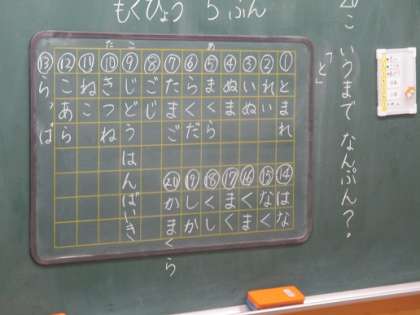 20こ いうまで なんぷん？
「と」
もくひょう 5 ふん
①とまれ
②れい
③いぬ
④ぬま
⑤まくら
⑥らくだ
⑦たまご
⑧ごじ
⑨じどうはんばいき
⑩きつね
⑪ねこ
⑫こあら
⑬らっぱ
⑭はな
⑮なく
⑯くま
⑰まく
⑱くし
⑲しか
⑳かまくら